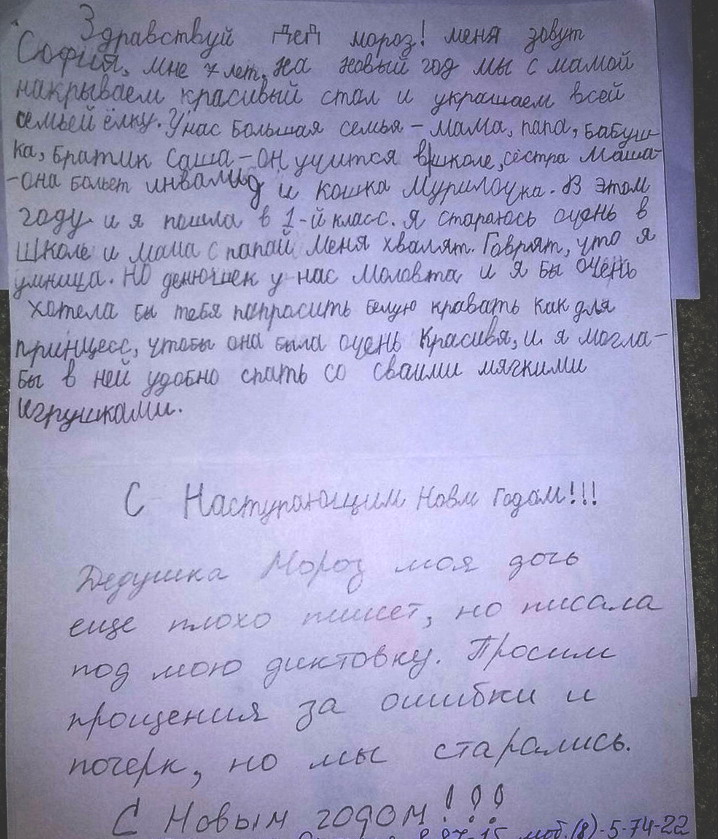 Здравствуй Дед мороз! меня зовут
София, мне 7 лет, на новый год мы с мамой
накрываем красивый стал и украшаем всей
семьей ёлку. У нас большая семья - мама, папа, бабуш-
ка, братик Саша - он учится в школе, сестра Маша-
-она бальет инвалид и кошка Мурилочка. В этом
году и я пошла в 1-й класс. Я стараюсь очень в
школе и мама с папай меня хвалят. Говрят, что я
умница. Но денюшек у нас маловта и я бы очень
хотела бы тебя папрасить белую кравать как для
принцесс, чтобы она была очень красивя, и я могла-
бы в ней удобно спать со сваими мягкими
игрушками.
С Наступающим Новм Годом!!!
Дедушка Мороз моя дочь
еще плохо пишет, но писала
под мою диктовку. Просим
прощения за ошибки и
почерк, но мы старались.
С Новым годом!!!
моб.(8)-5-74-22